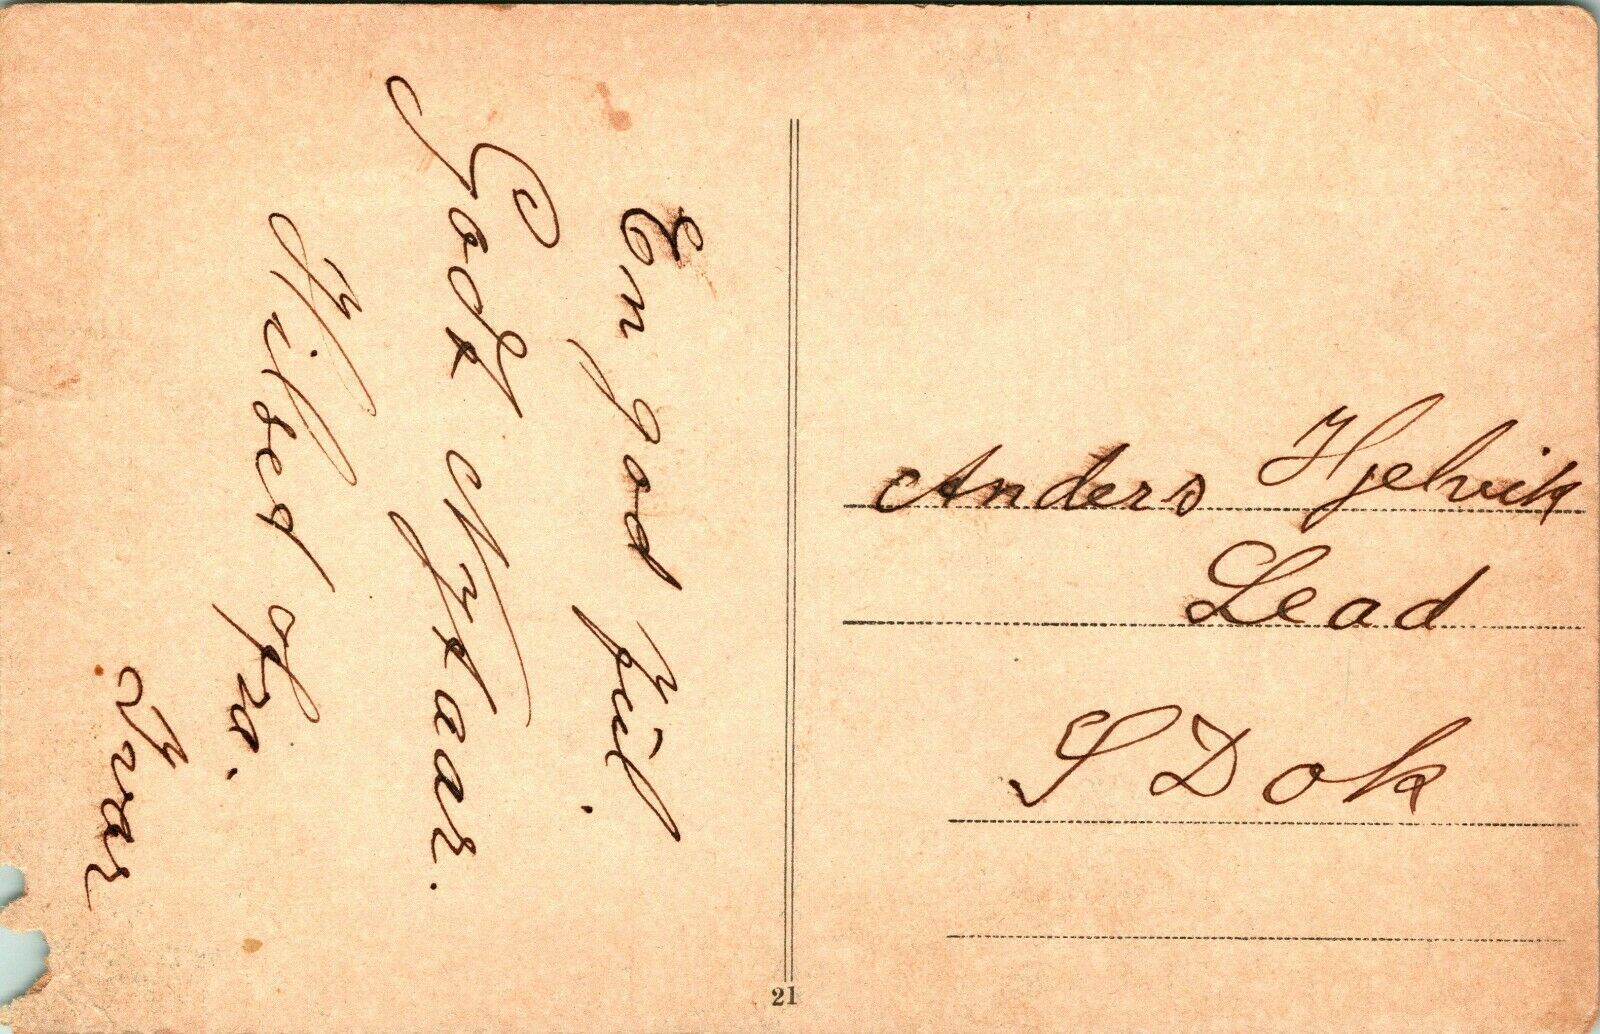 En god jul.
Godt Nytaar.
Hilsed fra.
Ivar
Anders Hjelvik
Lead
S Dok
21